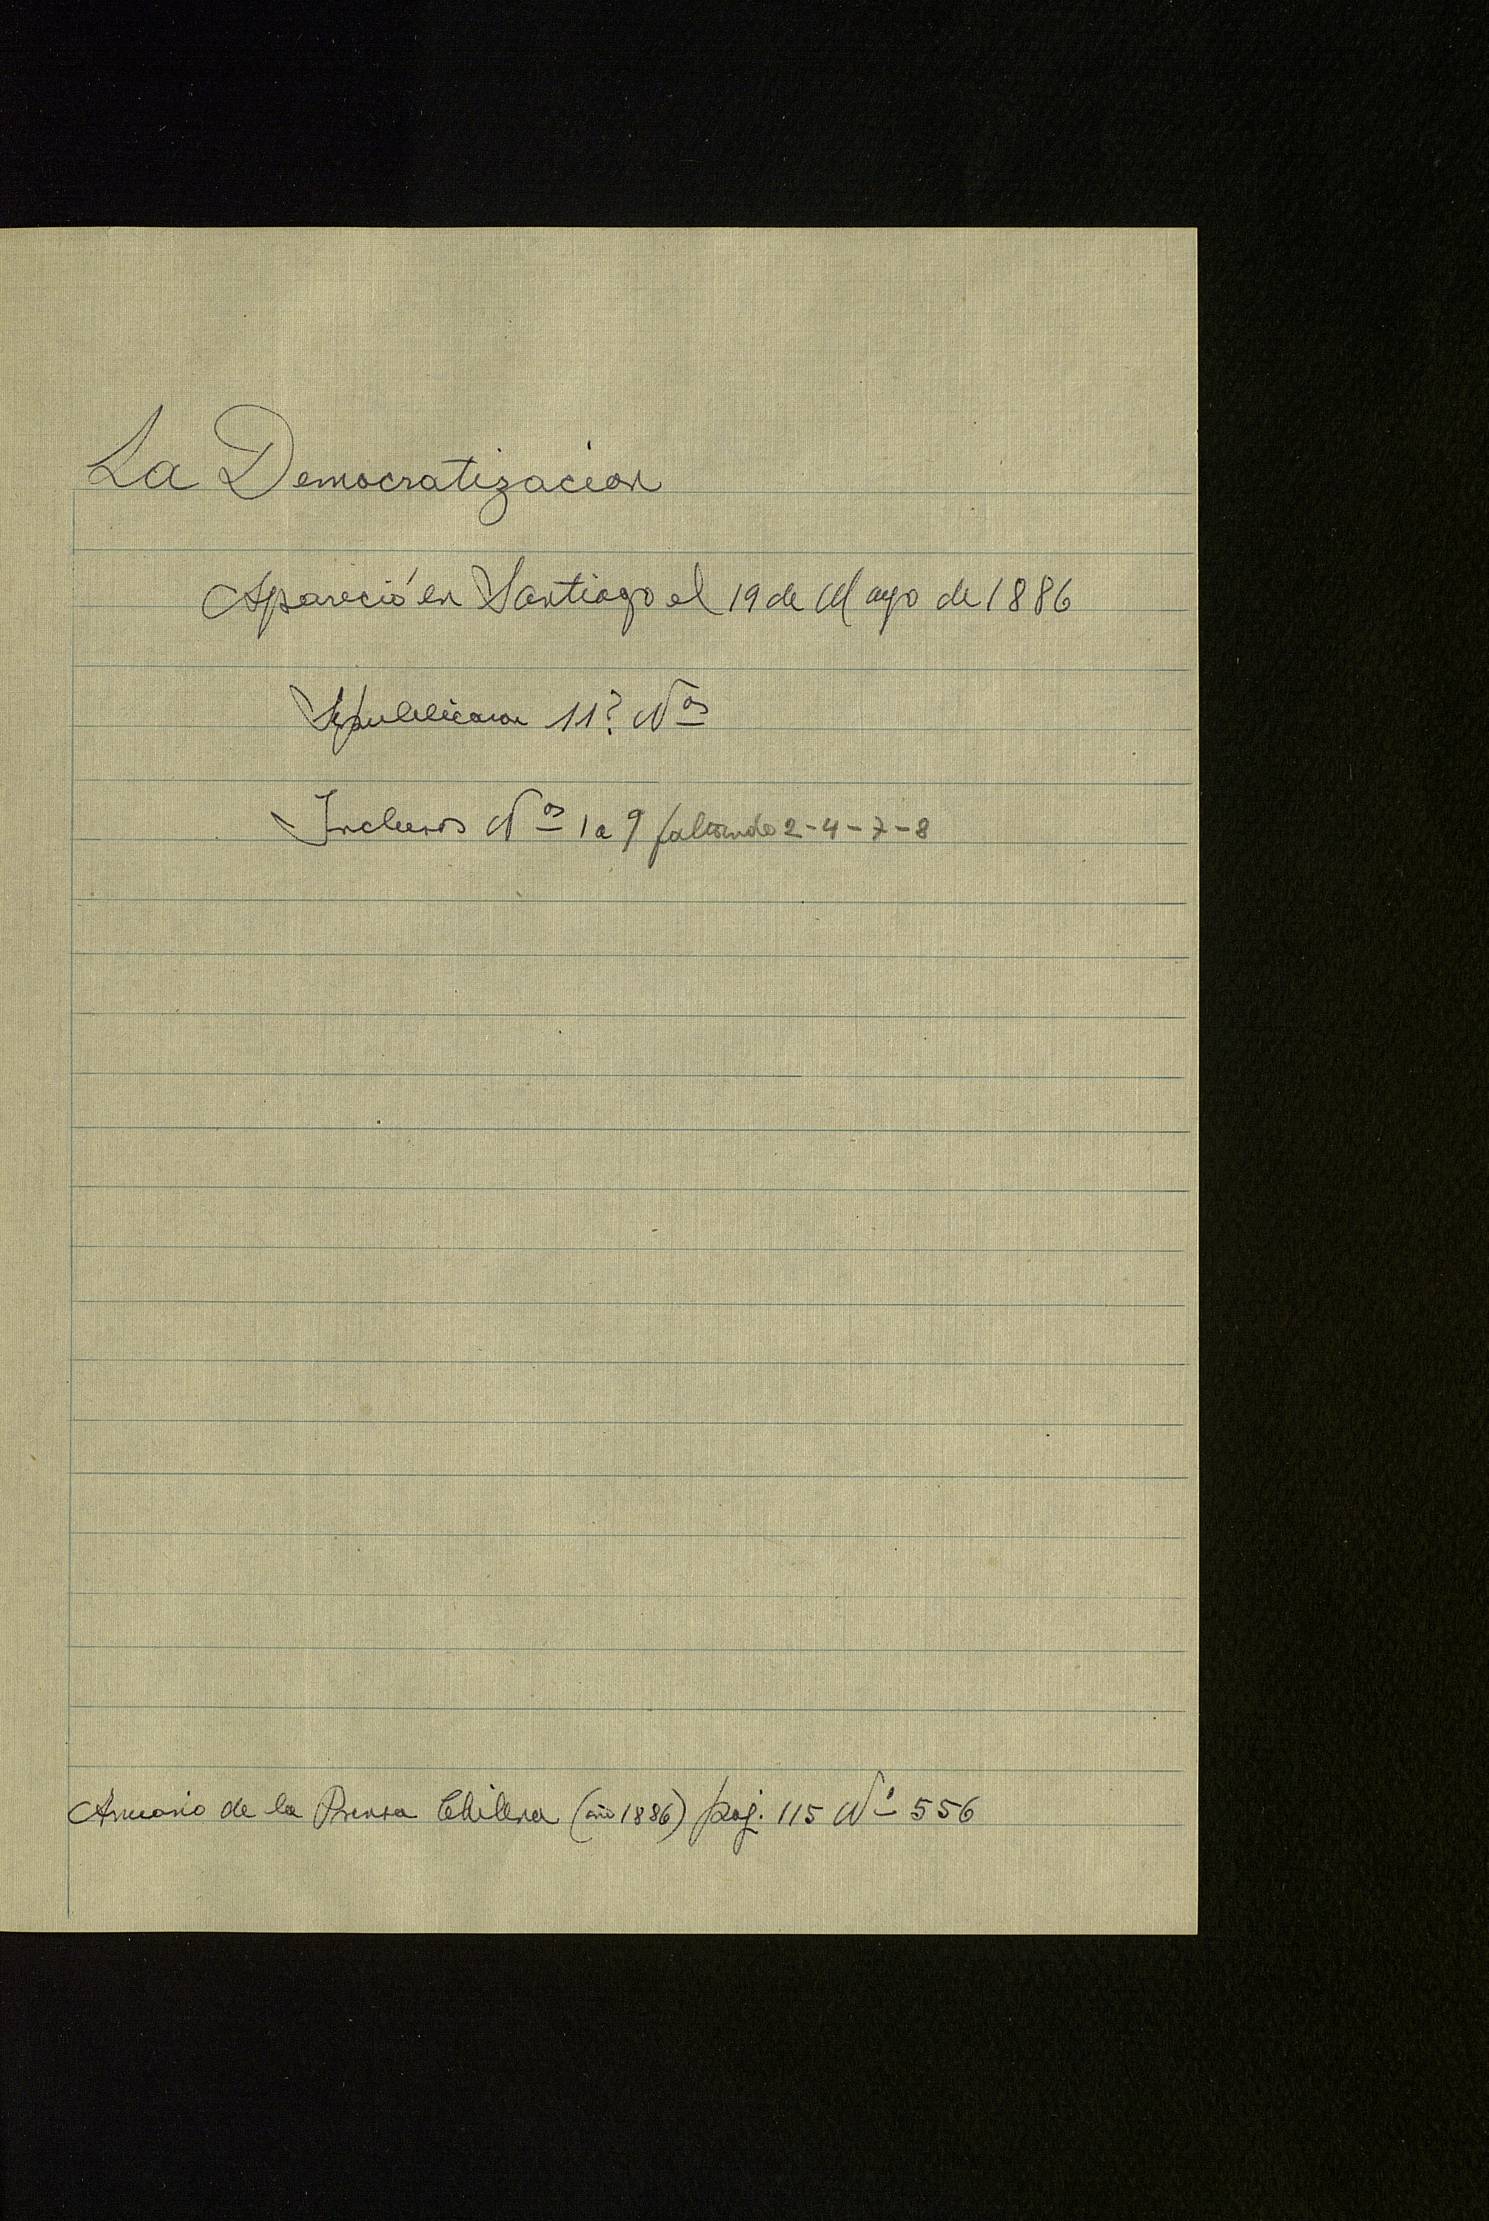 La Democratizacion
Apareció en Santiago el 19 de Mayo de 1886
Se publicaron 11? Nos
Inclusos Nos 1 a 9 faltando 2-4-7-8
Anuario de la Prensa Chilena (año 1886) páj. 115 No 556